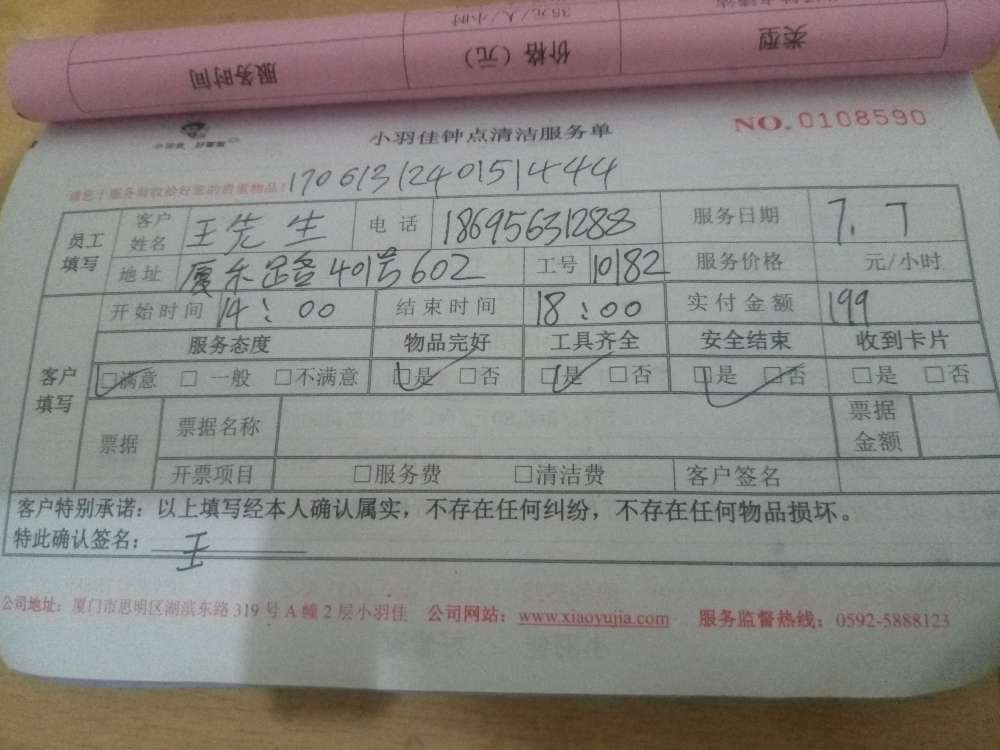 服务时间 价格（元） 类型
35元/人/小时
小羽佳 好管家
小羽佳钟点清洁服务单 NO.0108590
请您于服务前收拾好您的贵重物品! 1706131240151444
员工填写 客户姓名 王先生 电话 18695631288 服务日期 7.7
地址 厦禾路401号602 工号 10182 服务价格 元/小时
客户填写 开始时间 14:00 结束时间 18:00 实付金额 199
服务态度 物品完好 工具齐全 安全结束 收到卡片
□满意 □一般 □不满意 □是 □否 □是 □否 □是 □否 □是 □否
票据 票据名称 票据金额
开票项目 □服务费 □清洁费 客户签名
客户特别承诺：以上填写经本人确认属实，不存在任何纠纷，不存在任何物品损坏。
特此确认签名： 王
公司地址：厦门市思明区湖滨东路319号A幢2层小羽佳 公司网站：www.xiaoyujia.com 服务监督热线：0592-5888123